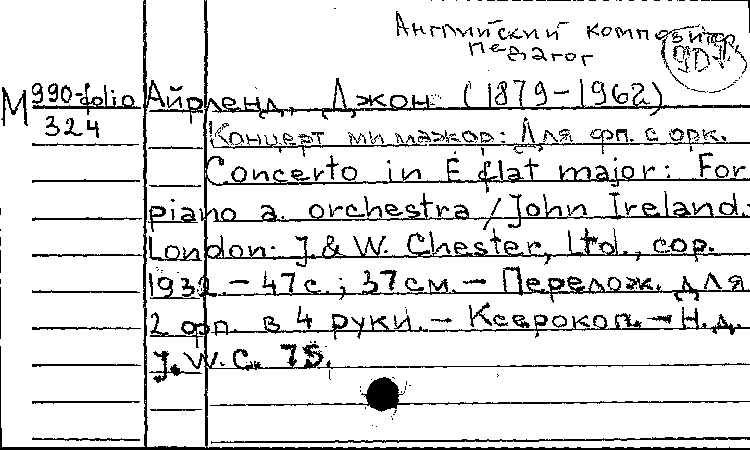 Английский композитор,
педагог
М 990-folio Айрленд, Джон (1879-1962)
324
Концерт ми мажор: Для фп. с орк.
Concerto in E flat major: For
piano a. orchestra / John Ireland.-
London: J. & W. Chester, Ltd., cop.
1932. - 47 с.; 37 см. - Перелож. для
2 фп. в 4 руки. - Ксерокоп. - Н.д.
J. W. C. 75.